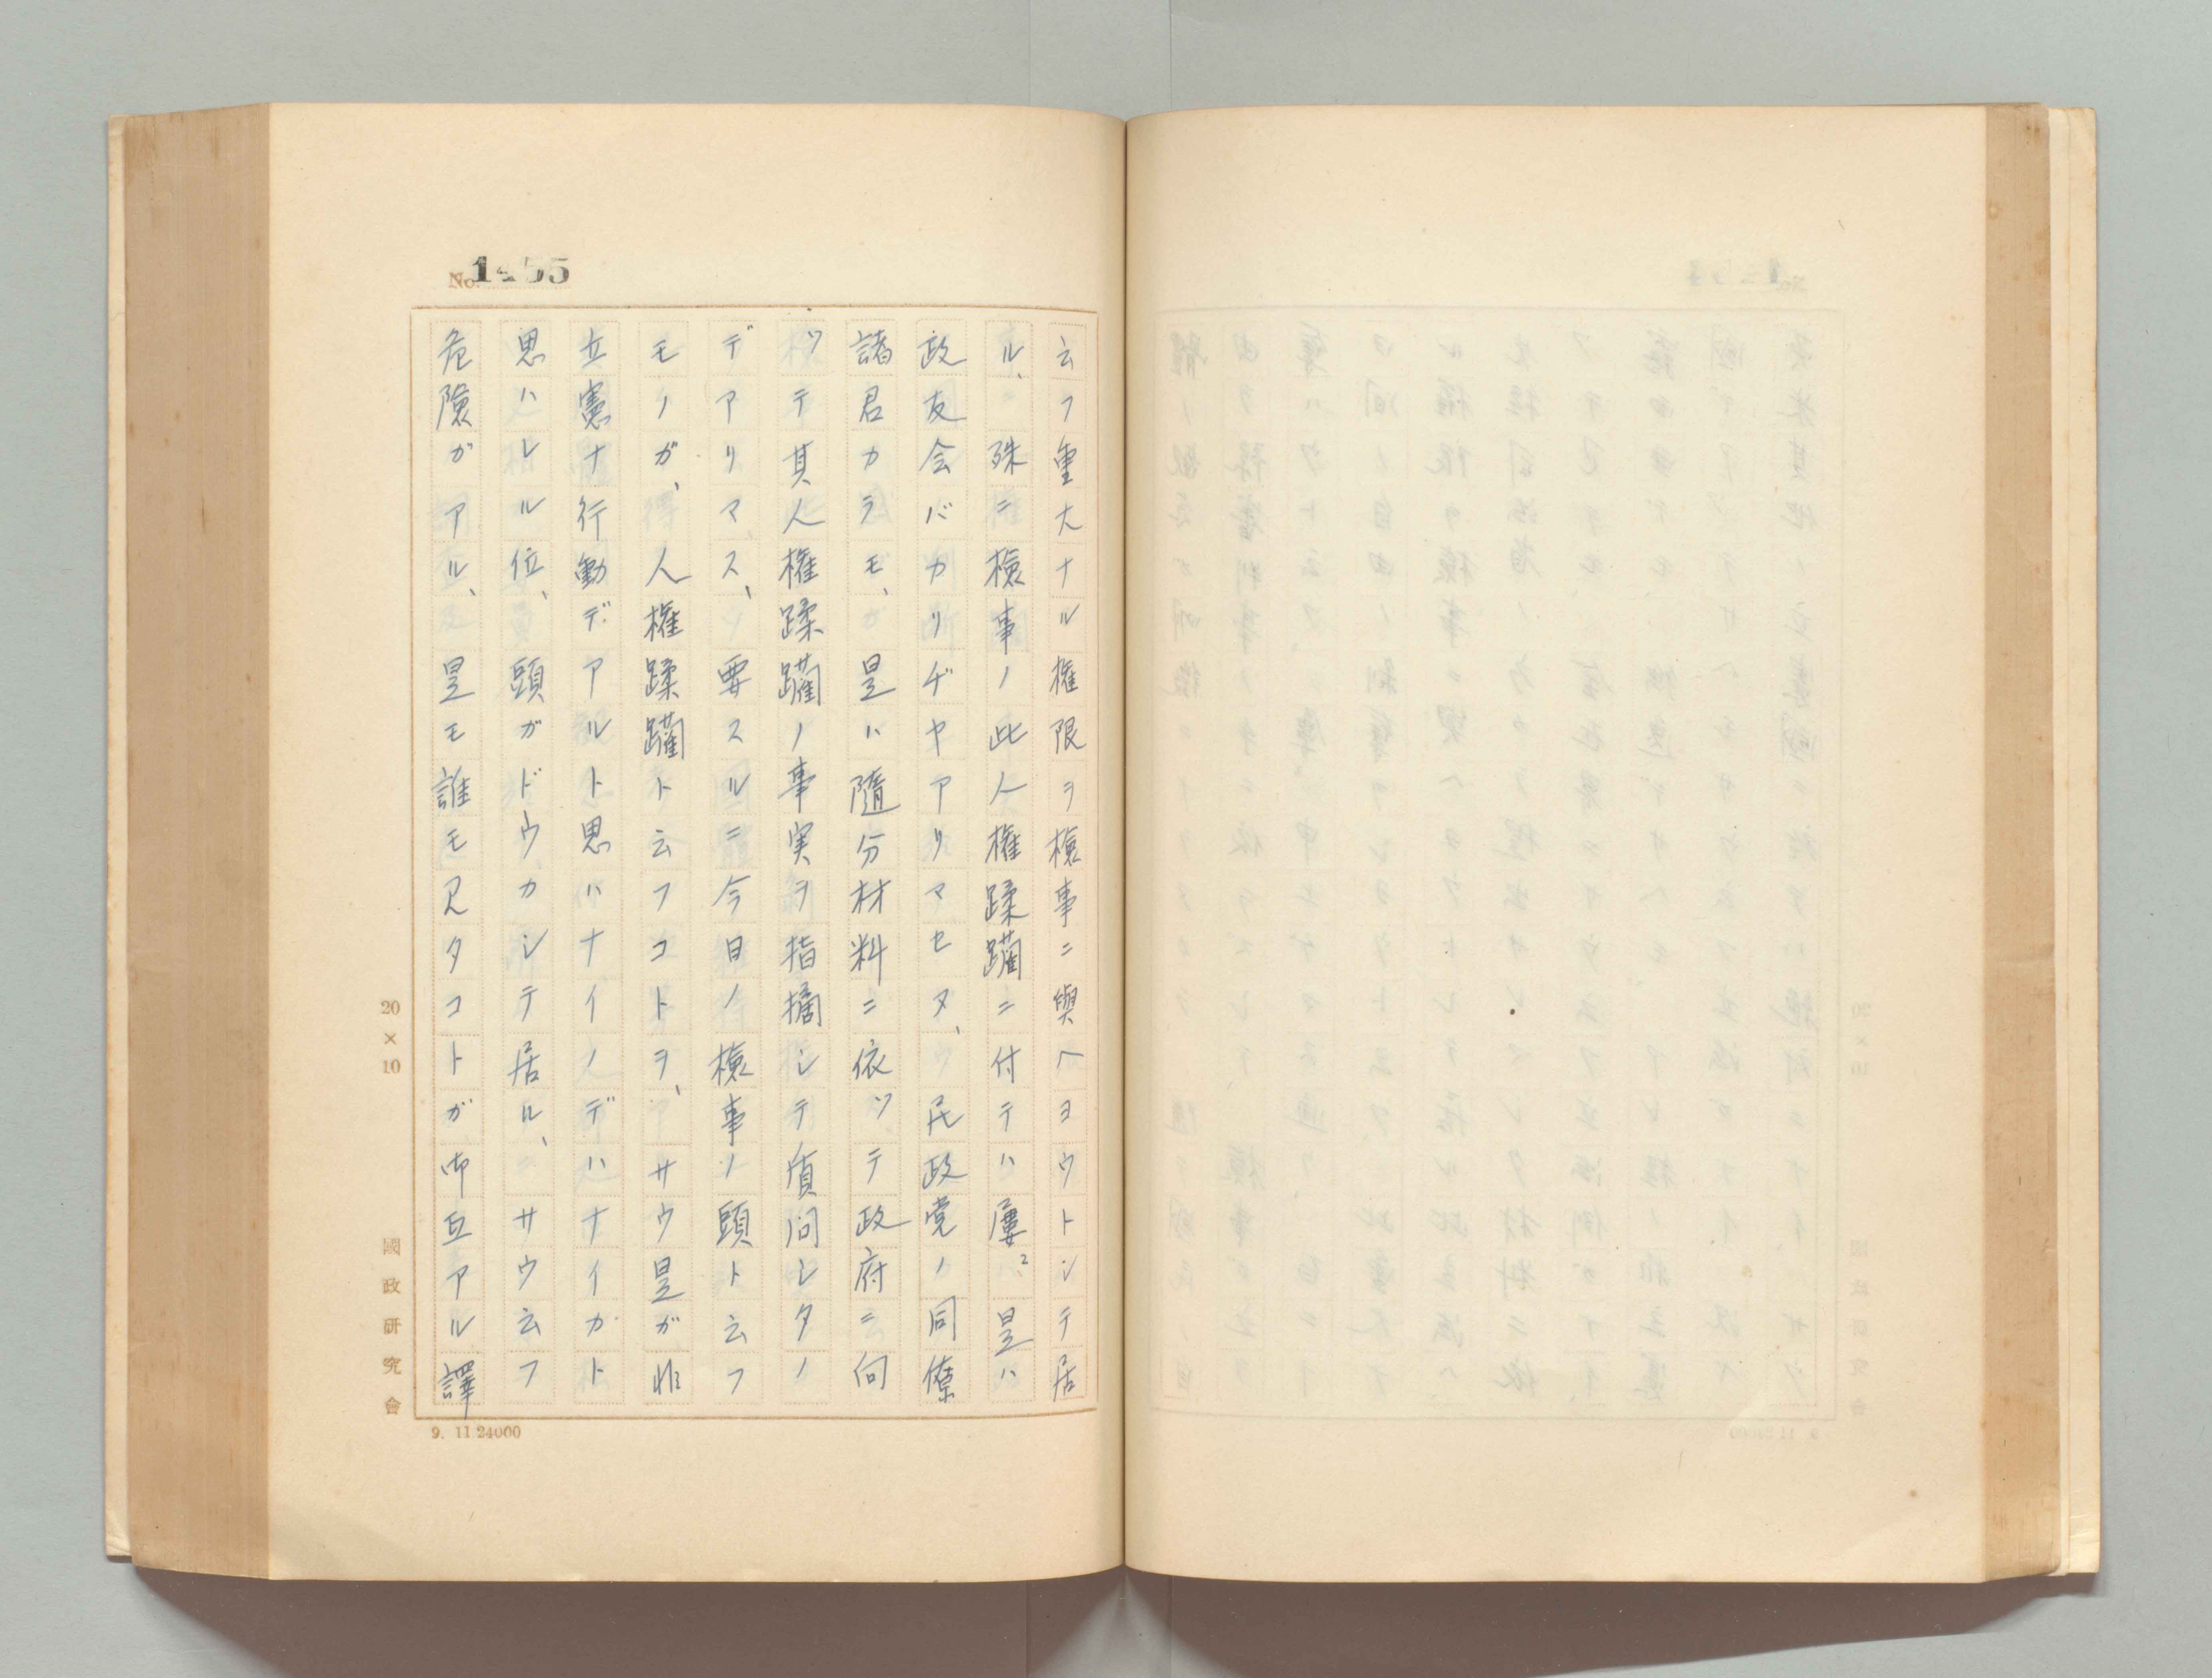 No. 1455
云フ重大ナル権限ヲ檢事ニ與ヘヨウトシテ居
ル、殊ニ檢事ノ此人権蹂躙ニ付テハ屢〻是ハ
政友会バカリヂヤアリマセヌ、民政党ノ同僚
諸君カラモ、是ハ隨分材料ニ依ツテ政府ニ向
ツテ其人権蹂躙ノ事実ヲ指摘シテ質問シタノ
デアリマス、要スルニ今日ノ檢事ノ頭ト云フ
モノガ、人権蹂躙ト云フコトヲ、サウ是ガ非
立憲ナ行動デアルト思ハナイノデハナイカト
思ハレル位、頭ガドウカシテ居ル、サウ云フ
危險ガアル、是モ誰モ見タコトガ御立アル譯
20×10
國政研究會
9. 11 24000